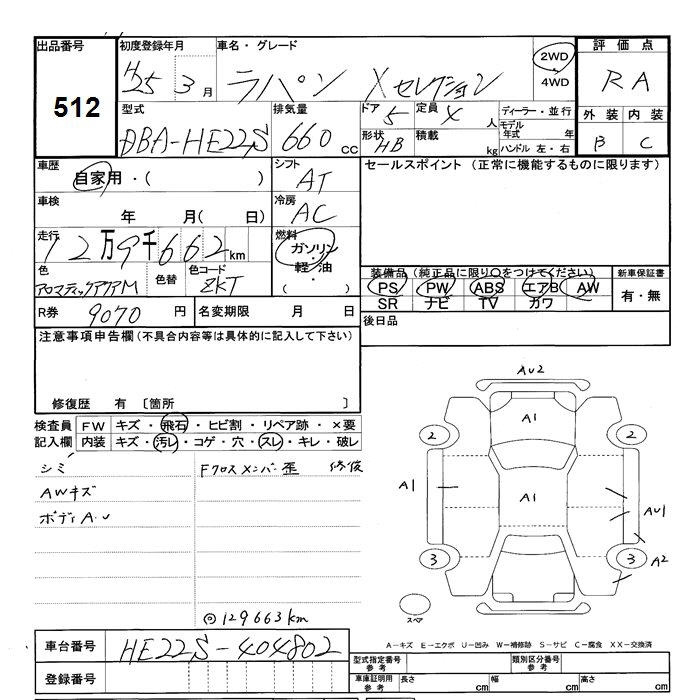 出品番号 初度登録年月 車名・グレード 2WD 評価点
512 H25 3月 ラパン Xセレクション 4WD RA
型式 排気量 ドア 5 定員 4人 ディーラー・並行 外装 内装
DBA-HE22S 660cc 形状 HB 積載 kg モデル年式 年 ハンドル 左・右 B C
車歴 自家用・( ) シフト AT セールスポイント (正常に機能するものに限ります)
車検 年 月( 日) 冷房 AC
走行 12万9千662km 燃料 ガソリン・軽油・( )
色 アロマティックアクアM 色替 色コード ZKT 装備品(純正品に限り○をつけてください) 新車保証書
PS PW ABS エアB AW 有・無
SR ナビ TV カワ
R券 9070円 名変期限 月 日 後日品
注意事項申告欄(不具合内容等は具体的に記入して下さい)
修復歴 有 〔箇所
検査員 FW キズ・飛石・ヒビ割・リペア跡・×要
記入欄 内装 キズ・汚レ・コゲ・穴・スレ・キレ・破レ
シミ Fクロスメンバー歪 修復
AWキズ
ボディA.U
◎129663km
AU2
A1
2 2
A1 A1 AU1
3 3 A2
スペア
A-キズ E-エクボ U-凹み W-補修跡 S-サビ C-腐食 XX-交換済
車台番号 HE22S-404802
登録番号
型式指定番号 参考 類別区分番号 参考
車庫証明用 参考 長さ cm 幅 cm 高さ cm